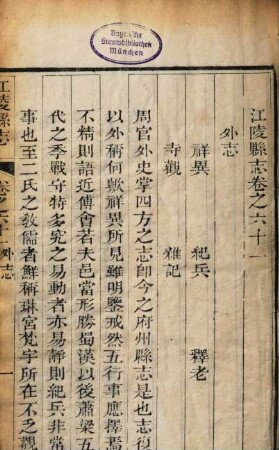 Bayerische
Staatsbibliothek
München
江陵縣志卷之六十一
外志
祥異　紀兵　釋老
寺觀　雜記
周官外史掌四方之志即今之府州縣志是也志復
以外稱何歟祥異所見雖明鑒戒然五行事應擇焉
不精則語近傅會若夫邑當形勝蜀漢以後蕭梁五
代之季戰守特多究之易動者亦易靜則紀兵非常
事也至二氏之敎儒者鮮稱琳宮梵宇所在不乏觀
江陵縣志
卷之六十一外志
一